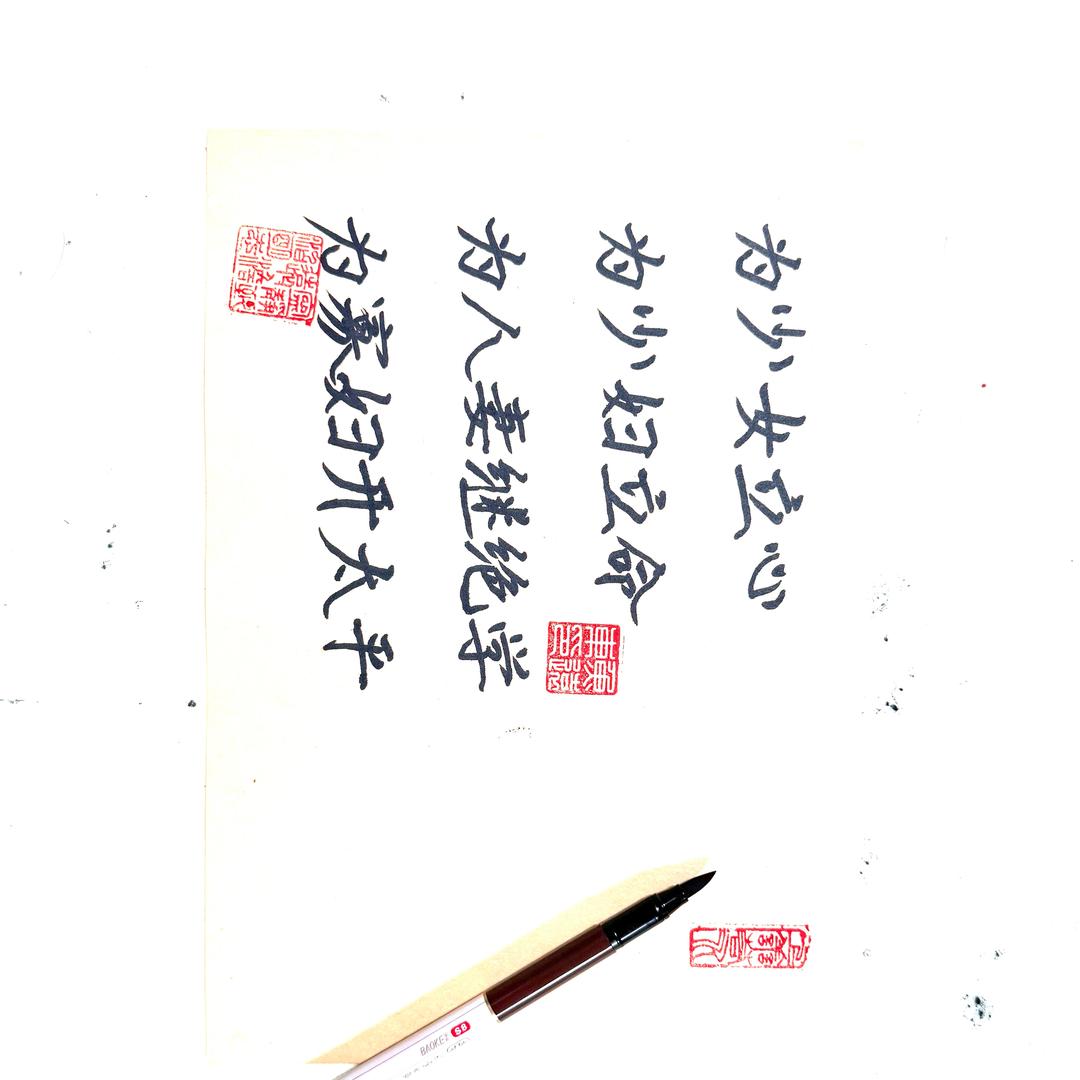 为少女立心
为少妇立命
为人妻继绝学
为寡妇开太平
BAOKE
S8